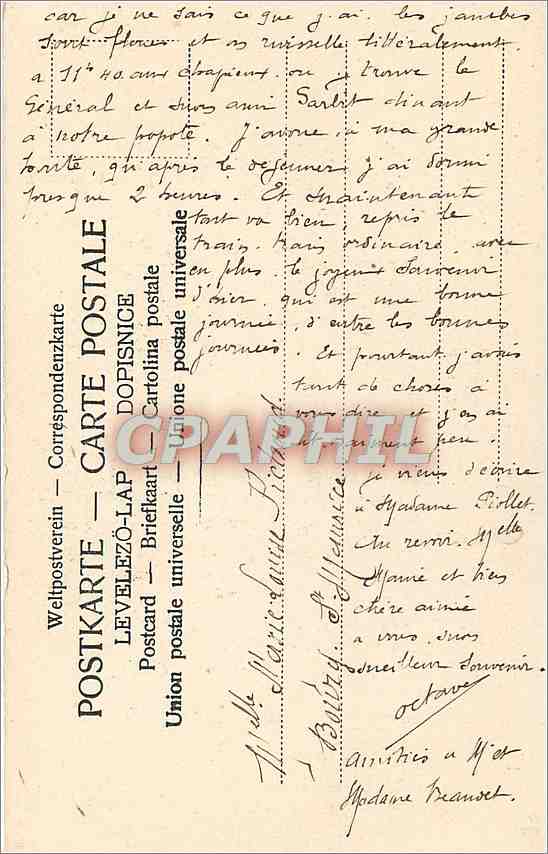 car je ne sais ce que j'ai. les jambes
sont et en ruisselle littéralement.
a 11h 40 aux chapieux où je trouve le
Général et mon ami dinant
à notre popote. J'avoue à ma grande
honte, qu'après le dejeuner j'ai dormi
presque 2 heures. Et maintenant
tout va bien, repris le
train-train ordinaire avec
en plus le joyeux souvenir
d'hier qui est une bonne
journée, d'entre les bonnes
journées. Et pourtant j'avais
tant de choses à
vous dire et j'en ai
dit vraiment peu.
je viens d'écrire
à Madame Piollet.
Au revoir Melle
Mamie et bien
chère aimée
a vous mon
meilleur souvenir.
octave
amitiés a Mr et
Madame
Weltpostverein — Correspondenzkarte
POSTKARTE — CARTE POSTALE
LEVELEZÖ-LAP DOPISNICE
Postcard — Briefkaart — Cartolina postale
Union postale universelle — Unione postale universale
Melle Marie-Louise
Bourg St Maurice
CPAPHIL